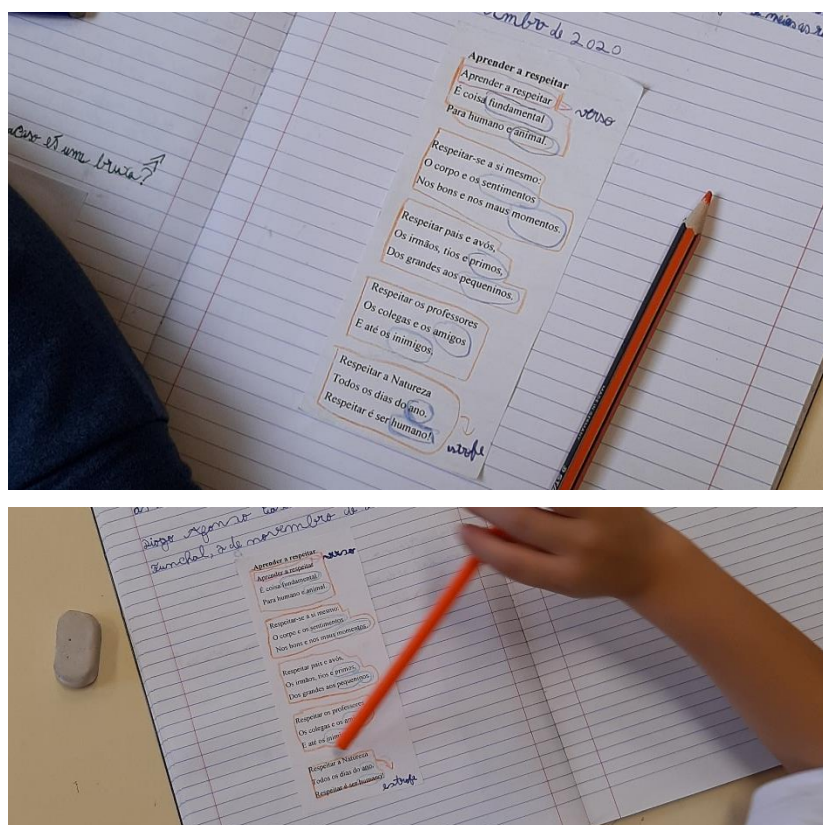 mbro de 2020
Aprender a respeitar
Aprender a respeitar
É coisa fundamental
verso
Para humano e animal.
Respeitar-se a si mesmo:
O corpo e os sentimentos
Nos bons e nos maus momentos.
Respeitar pais e avós,
Os irmãos, tios e primos,
Dos grandes aos pequeninos.
Respeitar os professores
Os colegas e os amigos
E até os inimigos.
Respeitar a Natureza
Todos os dias do ano.
Respeitar é ser humano!
estrofe
acaso és uma bruxa?
Diogo Afonso
Funchal, 2 de novembro de
Aprender a respeitar
verso
Aprender a respeitar
É coisa fundamental
Para humano e animal.
Respeitar-se a si mesmo:
O corpo e os sentimentos
Nos bons e nos maus momentos.
Respeitar pais e avós,
Os irmãos, tios e primos,
Dos grandes aos pequeninos.
Respeitar os professores
Os colegas e os
E até os inim
Respeitar a Natureza
Todos os dias do ano.
Respeitar é ser humano!
estrofe